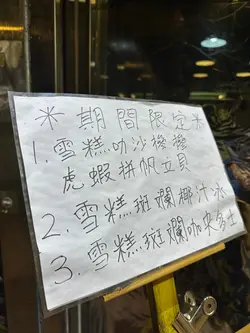 *期間限定*
1. 雪糕叻沙
虎蝦拼帆立貝
2. 雪糕斑斕椰汁冰
3. 雪糕斑斕咖央多士